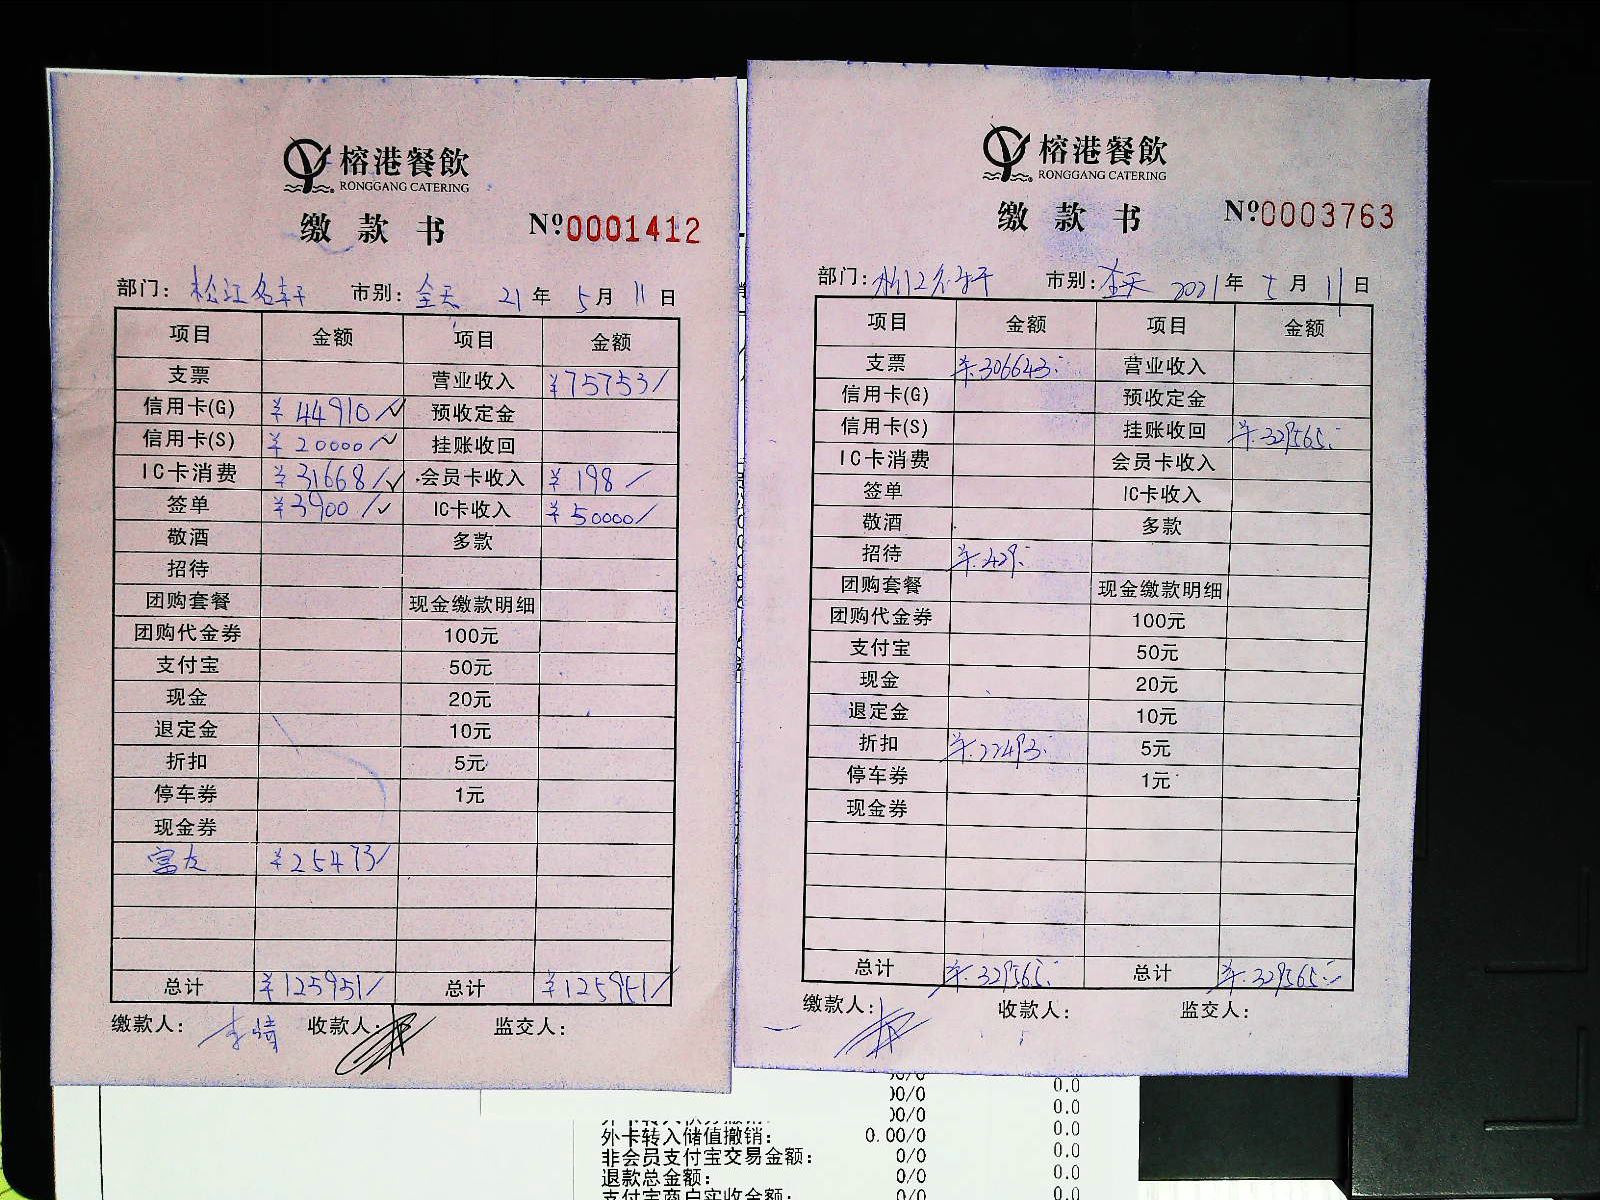 榕港餐飲
RONGGANG CATERING
缴款书 №0001412
部门: 松江名轩 市别: 全天 21年5月11日
项目 金额 项目 金额
支票 营业收入 ¥75753/
信用卡(G) ¥44910/✓ 预收定金
信用卡(S) ¥20000/✓ 挂账收回
IC卡消费 ¥31668/✓ 会员卡收入 ¥198/
签单 ¥3900/✓ IC卡收入 ¥50000/
敬酒 多款
招待
团购套餐 现金缴款明细
团购代金券 100元
支付宝 50元
现金 20元
退定金 10元
折扣 5元
停车券 1元
现金券
富友 ¥25473/
总计 ¥125951/ 总计 ¥125951/
缴款人: 李 收款人: 监交人:
榕港餐飲
RONGGANG CATERING
缴款书 №0003763
部门: 松江名轩 市别: 全天 2021年5月11日
项目 金额 项目 金额
支票 ¥306643 营业收入
信用卡(G) 预收定金
信用卡(S) 挂账收回 ¥329565
IC卡消费 会员卡收入
签单 IC卡收入
敬酒 多款
招待 ¥429
团购套餐 现金缴款明细
团购代金券 100元
支付宝 50元
现金 20元
退定金 10元
折扣 ¥22493 5元
停车券 1元
现金券
总计 ¥329565 总计 ¥329565
缴款人: 收款人: 监交人:
0.0
00/0 0.0
00/0
外卡转入储值撤销: 0.00/0 0.0
非会员支付宝交易金额: 0/0 0.0
退款总金额: 0/0 0.0
支付宝商户实收金额: 0/0 0.0